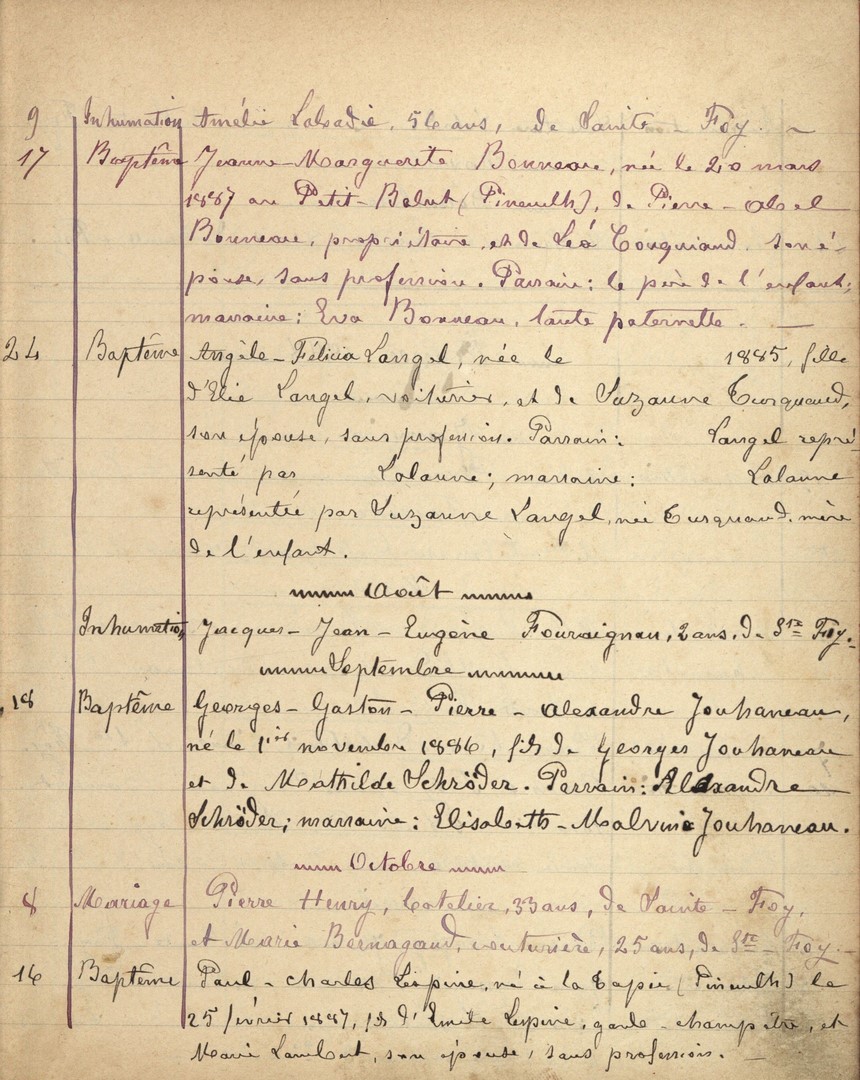 9 Inhumation Amélie Labadie, 56 ans, de Sainte-Foy.
17 Baptême Jeanne-Marguerite Bonneau, née le 20 mars
1887 au Petit-Belut (Pineuilh), de Pierre-Abel
Bonneau, propriétaire, et de Léa Couquiaud son é-
pouse, sans profession. Parrain: le père de l'enfant;
marraine: Eva Bonneau, tante paternelle. —
24 Baptême Angèle-Félicia Langel, née le 1885, fille
d'Elie Langel, voiturier, et de Suzanne Turquaud,
son épouse, sans profession. Parrain: Langel repré-
senté par Lalanne; marraine: Lalanne
représentée par Suzanne Langel, née Turquaud, mère
de l'enfant.
Août
Inhumation Jacques-Jean-Eugène Fouraignan, 2 ans, de Ste Foy.
Septembre
18 Baptême Georges-Gaston-Pierre-Alexandre Jouhaneau,
né le 1ier novembre 1886, fils de Georges Jouhaneau
et de Mathilde Schröder. Parrain: Alexandre
Schröder; marraine: Elisabeth-Malvina Jouhaneau.
Octobre
8 Mariage Pierre Henry, batelier, 33 ans, de Sainte-Foy,
et Marie Bernagaud, couturière, 25 ans, de Ste-Foy. —
16 Baptême Paul-charles Lespine, né à la Tapie (Pineuilh) le
25 février 1887, fils d'Emile Lespine, garde-champêtre, et
Marie Lambert, son épouse, sans profession. —